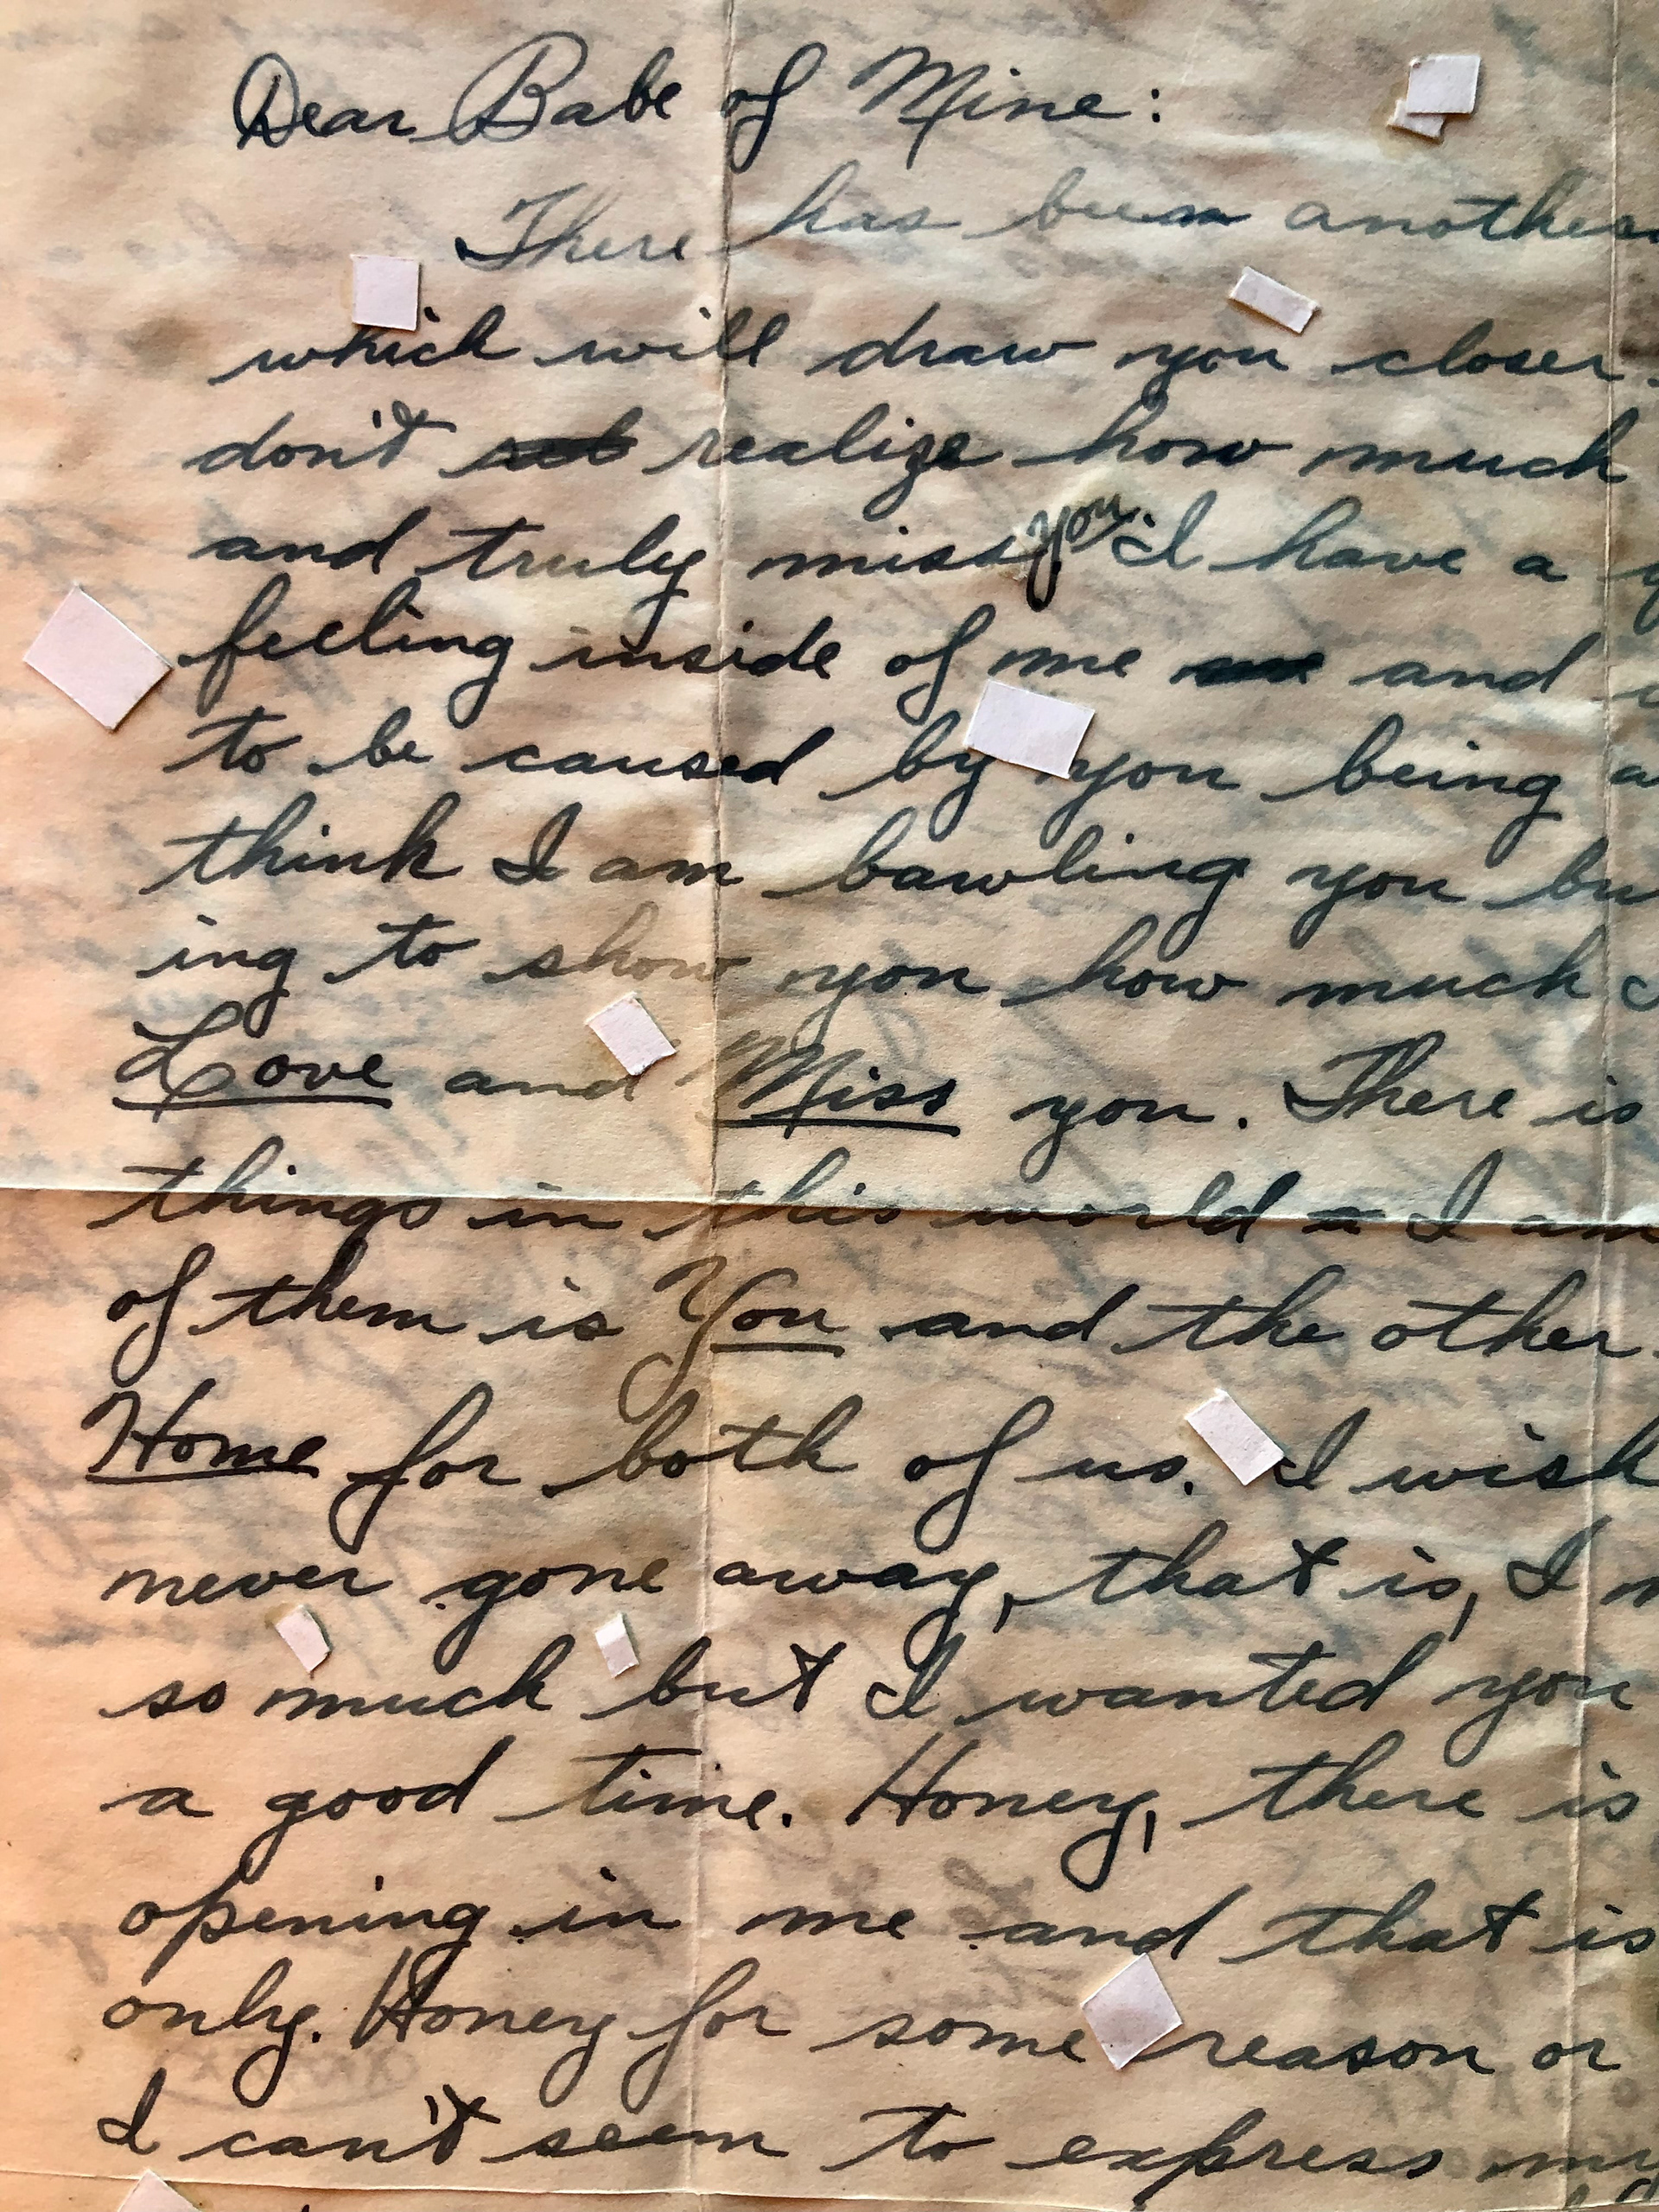 Dear Babe of Mine:
There has been another
which will draw you closer.
don't realize how much
and truly miss you. I have a
feeling inside of me and
to be caused by you being a
think I am bawling you bu
ing to show you how much I
Love and Miss you. There is
things in this world I am
of them is You and the other
Home for both of us. I wish
never gone away, that is, I
so much but I wanted you
a good time. Honey, there is
opening in me and that is
only. Honey for some reason or
I can't seem to express my